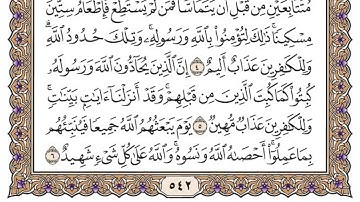 مُتَتَابِعَيْنِ مِن قَبْلِ أَن يَتَمَآسَّا فَمَن لَّمْ يَسْتَطِعْ فَإِطْعَامُ سِتِّينَ
مِسْكِينًا ذَٰلِكَ لِتُؤْمِنُوا۟ بِٱللَّهِ وَرَسُولِهِۦ وَتِلْكَ حُدُودُ ٱللَّهِ
وَلِلْكَٰفِرِينَ عَذَابٌ أَلِيمٌ ٤ إِنَّ ٱلَّذِينَ يُحَآدُّونَ ٱللَّهَ وَرَسُولَهُۥ
كُبِتُوا۟ كَمَا كُبِتَ ٱلَّذِينَ مِن قَبْلِهِمْ وَقَدْ أَنزَلْنَآ ءَايَٰتٍۭ بَيِّنَٰتٍ
وَلِلْكَٰفِرِينَ عَذَابٌ مُّهِينٌ ٥ يَوْمَ يَبْعَثُهُمُ ٱللَّهُ جَمِيعًا فَيُنَبِّئُهُم
بِمَا عَمِلُوٓا۟ أَحْصَىٰهُ ٱللَّهُ وَنَسُوهُ وَٱللَّهُ عَلَىٰ كُلِّ شَىْءٍ شَهِيدٌ ٦
٥٤٢